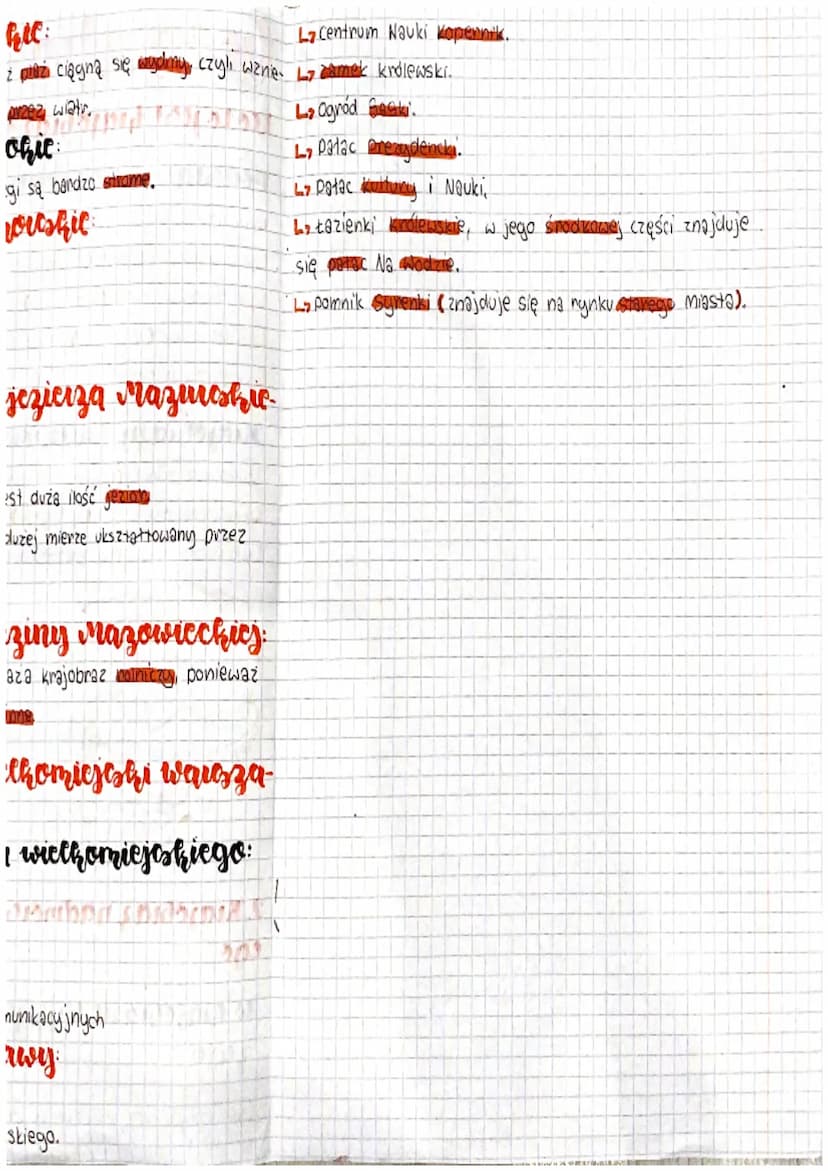 kie:
ż plaż ciągną się wydmy, czyli wznie-
przez wiatr.
okie:
gi są bardzo strome.
jezierza Mazurskie-
est duża ilość jezior
dużej mierze ukształtowany przez
ziny Mazowieckiej:
aża krajobraz rolniczy, ponieważ
elkomiejski warsza-
wielkomiejskiego:
munikacyjnych
awy:
skiego.
↳ Centrum Nauki Kopernik.
↳ zamek królewski.
↳ Ogród Saski.
↳ Pałac prezydencki.
↳ Pałac kultury i Nauki,
↳ Łazienki królewskie, w jego środkowej części znajduje
się pałac Na Wodzie.
↳ pomnik Syrenki (znajduje się na rynku starego miasta).